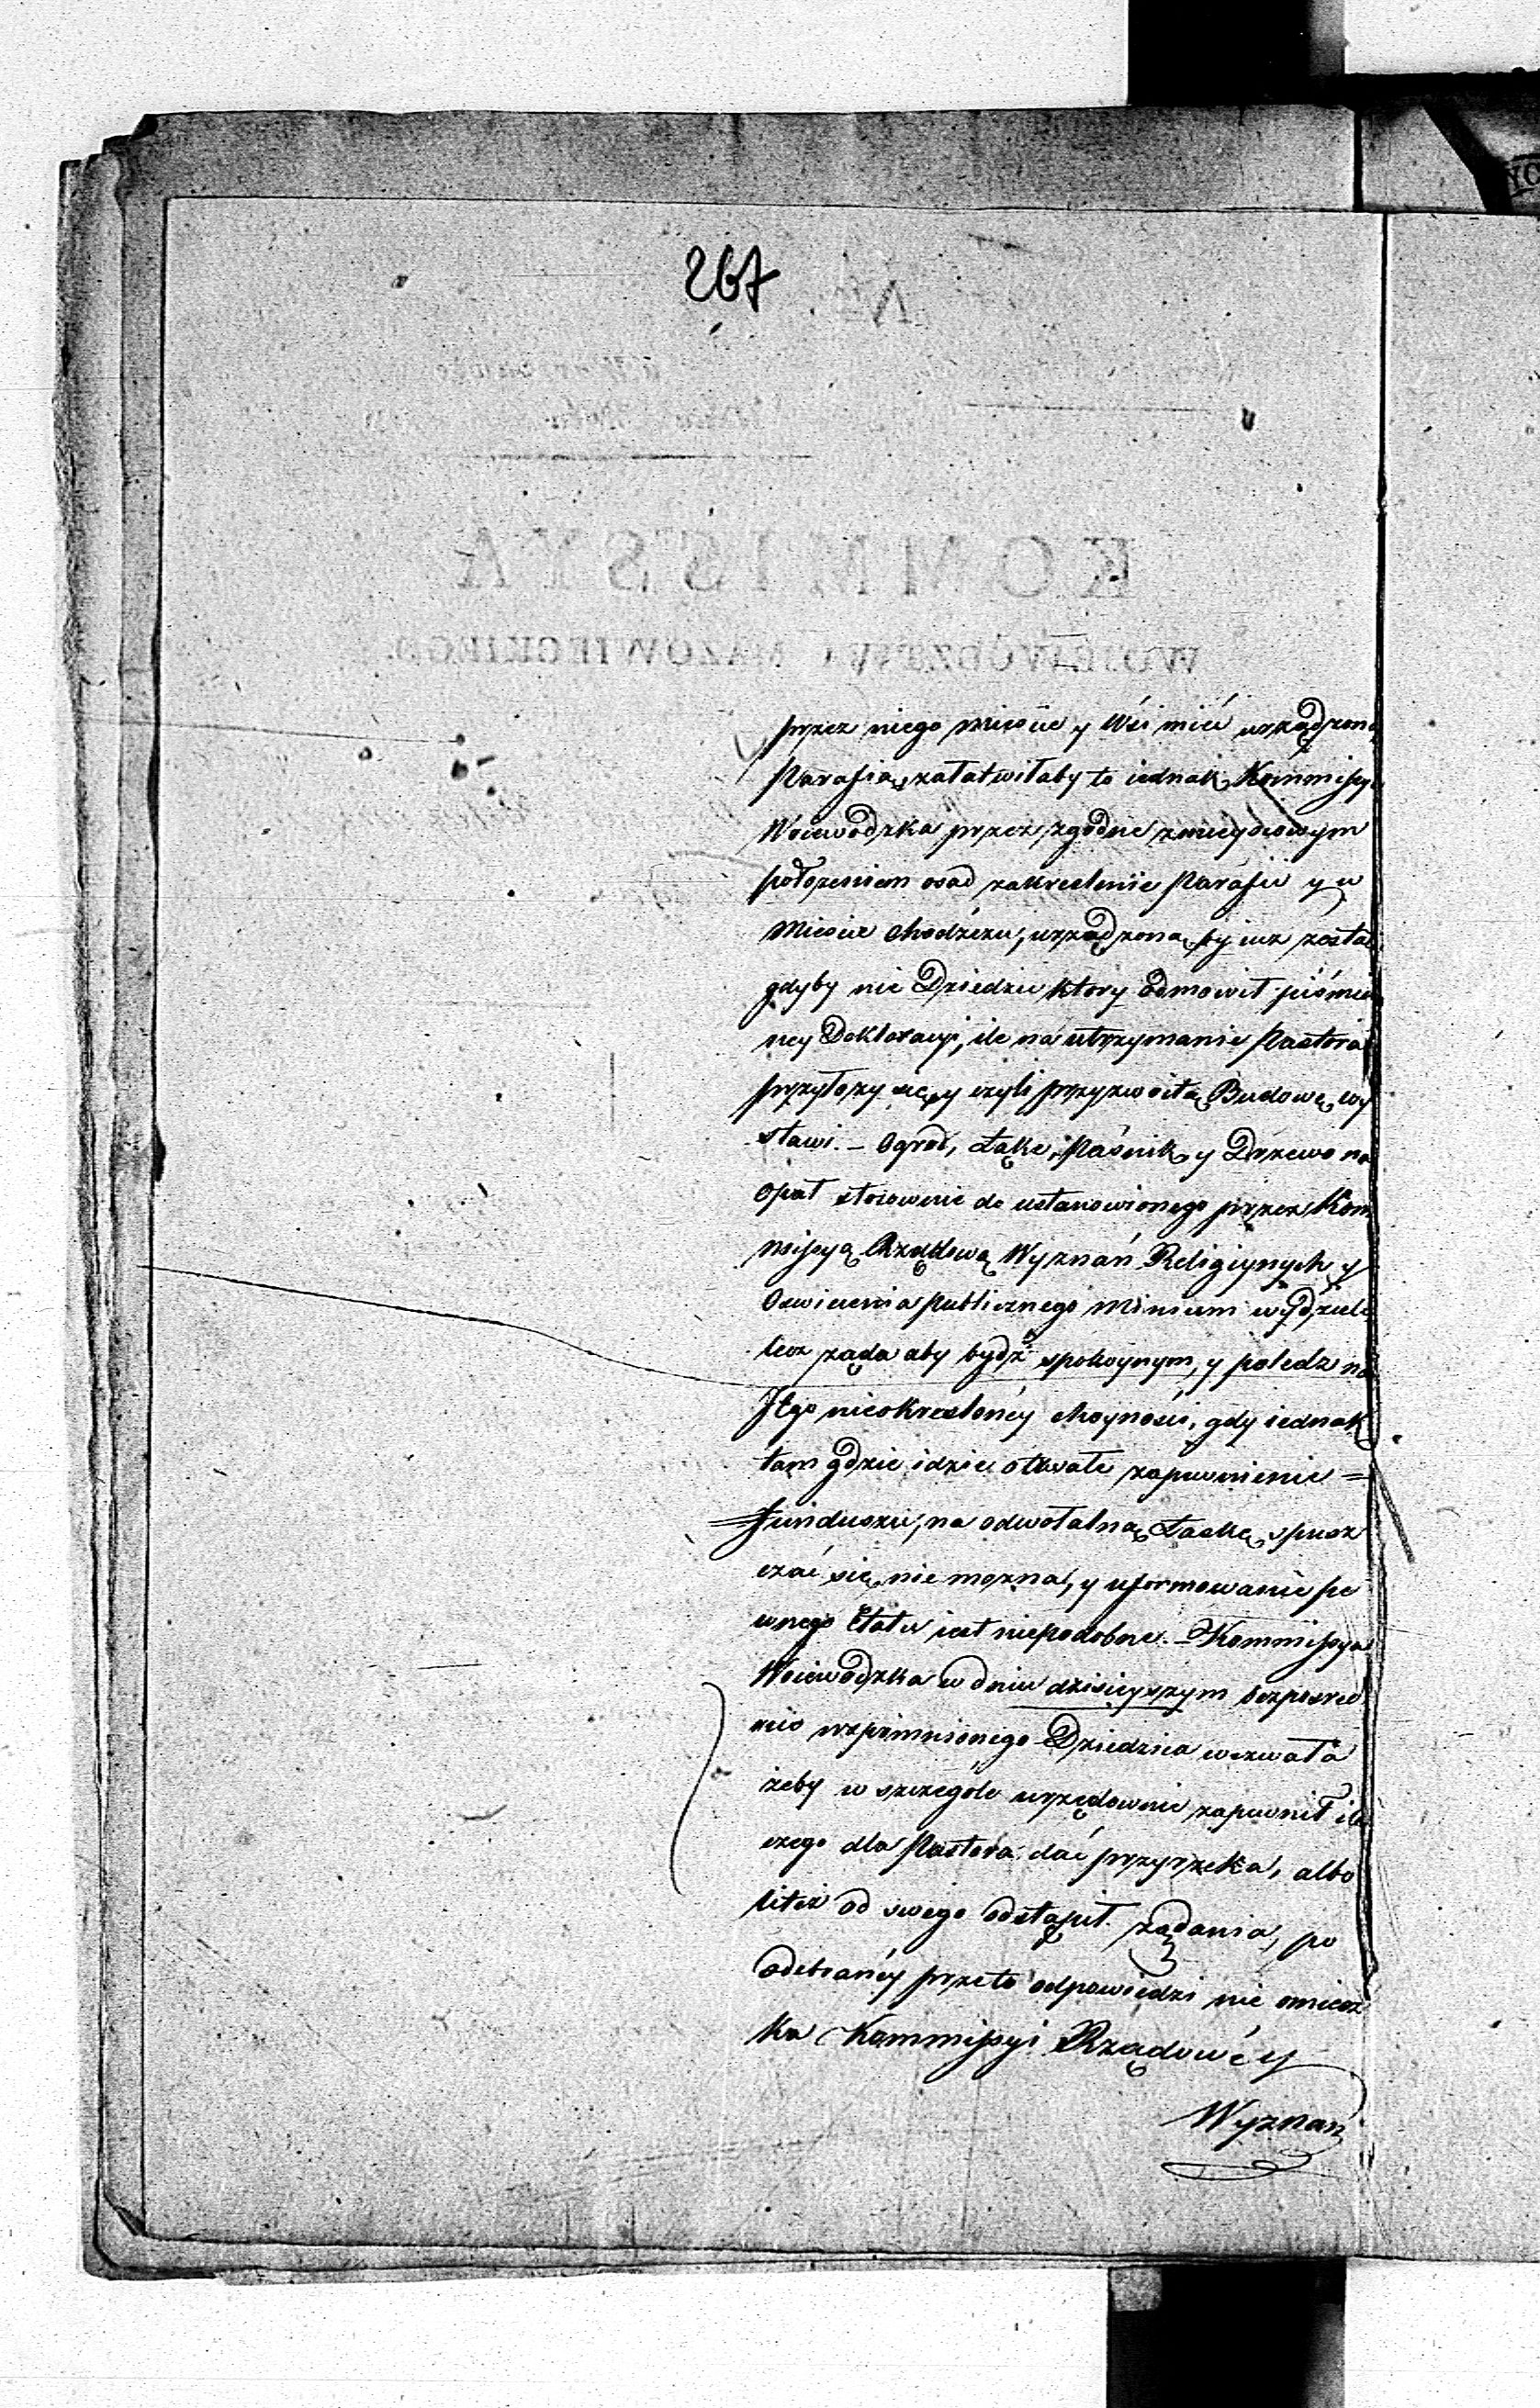 267
przez niego mieście y Wsi mieć urządzoną
Parafią, załatwiłaby to iednak Kommissya
Woiewodzka przez zgodne z mieyscowym
położeniem osad zakreślenie Parafii y w
Mieście Chodzczu, urządzoną by iuż została
gdyby nie Dziedzic ktory odmowił piśmie
ney Deklaracyi, ile na utrzymanie Pastora
przyłoży się, y czyli przyzwoitą Budowę wy
stawi. – Ogrod, Łąkę, Paśnik y Drzewo na
Opał stosownie do ustanowionego przez Kom
missyą Rządową Wyznań Religiynych y
Oswiecenia Publicznego Minium wydziele
lecz żąda aby bydź spokoynym, y poledz na
Jego nieokreślonéy choyności, gdy iednak
tam gdzie idzie o trwałe zapewnienie =
Funduszu, na odwołalną Łaskę spusz
czać się nie można, y uformowanie pe
wnego Etatu iest niepodobne. – Kommissya
Woiewodzka w dniu dzisieyszym bezpośre
nio wspomnionego Dziedzica wezwała
żeby w szczegole urzędownie zapewnił ile
czego dla Pastora dać przyrzeka, albo
liteż od swego odstąpił żądania, po
odebranéy przeto odpowiedzi nie omiesz
ka Kommissyi Rządowéy
Wyznań